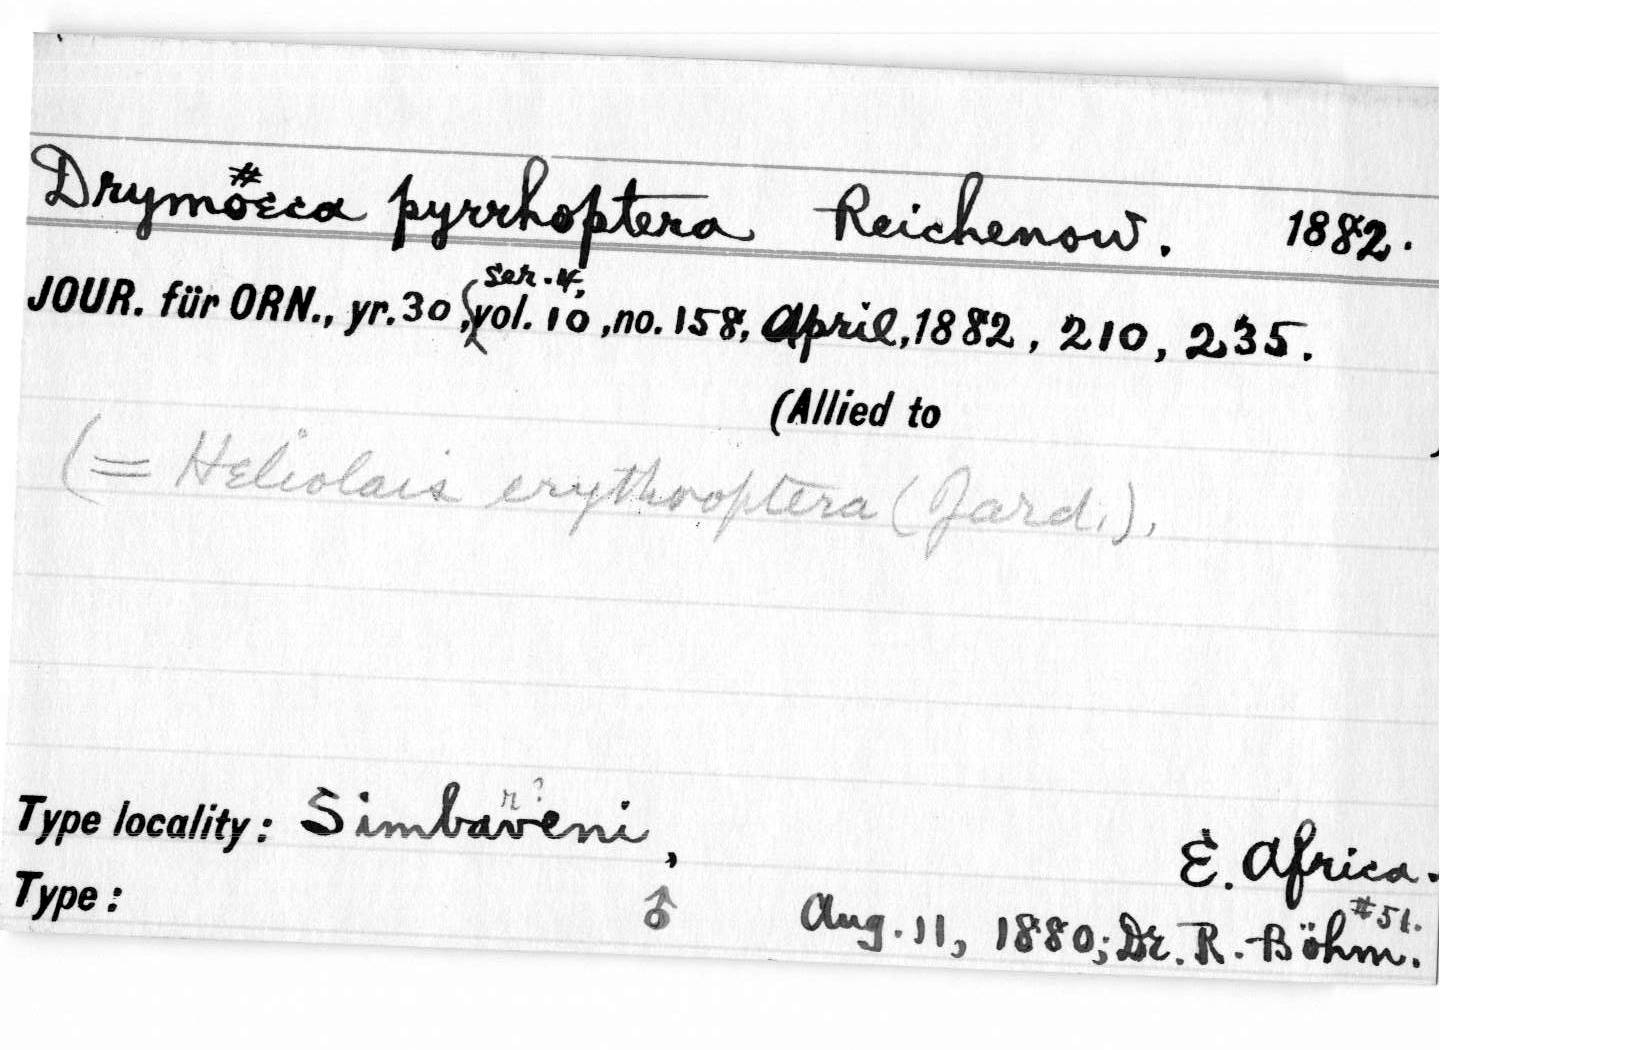 Drymöeca pyrrhoptera Reichenow. 1882.
#
JOUR. für ORN., yr. 30, (vol. 10, no. 158, April, 1882, 210, 235.
ser. 4,
(Allied to )
(= Heliolais erythroptera (Jard.),
Type locality: Simbaveni, E. Africa.
r?
Type: ♂ Aug. 11, 1880; Dr. R. Böhm.
#51.